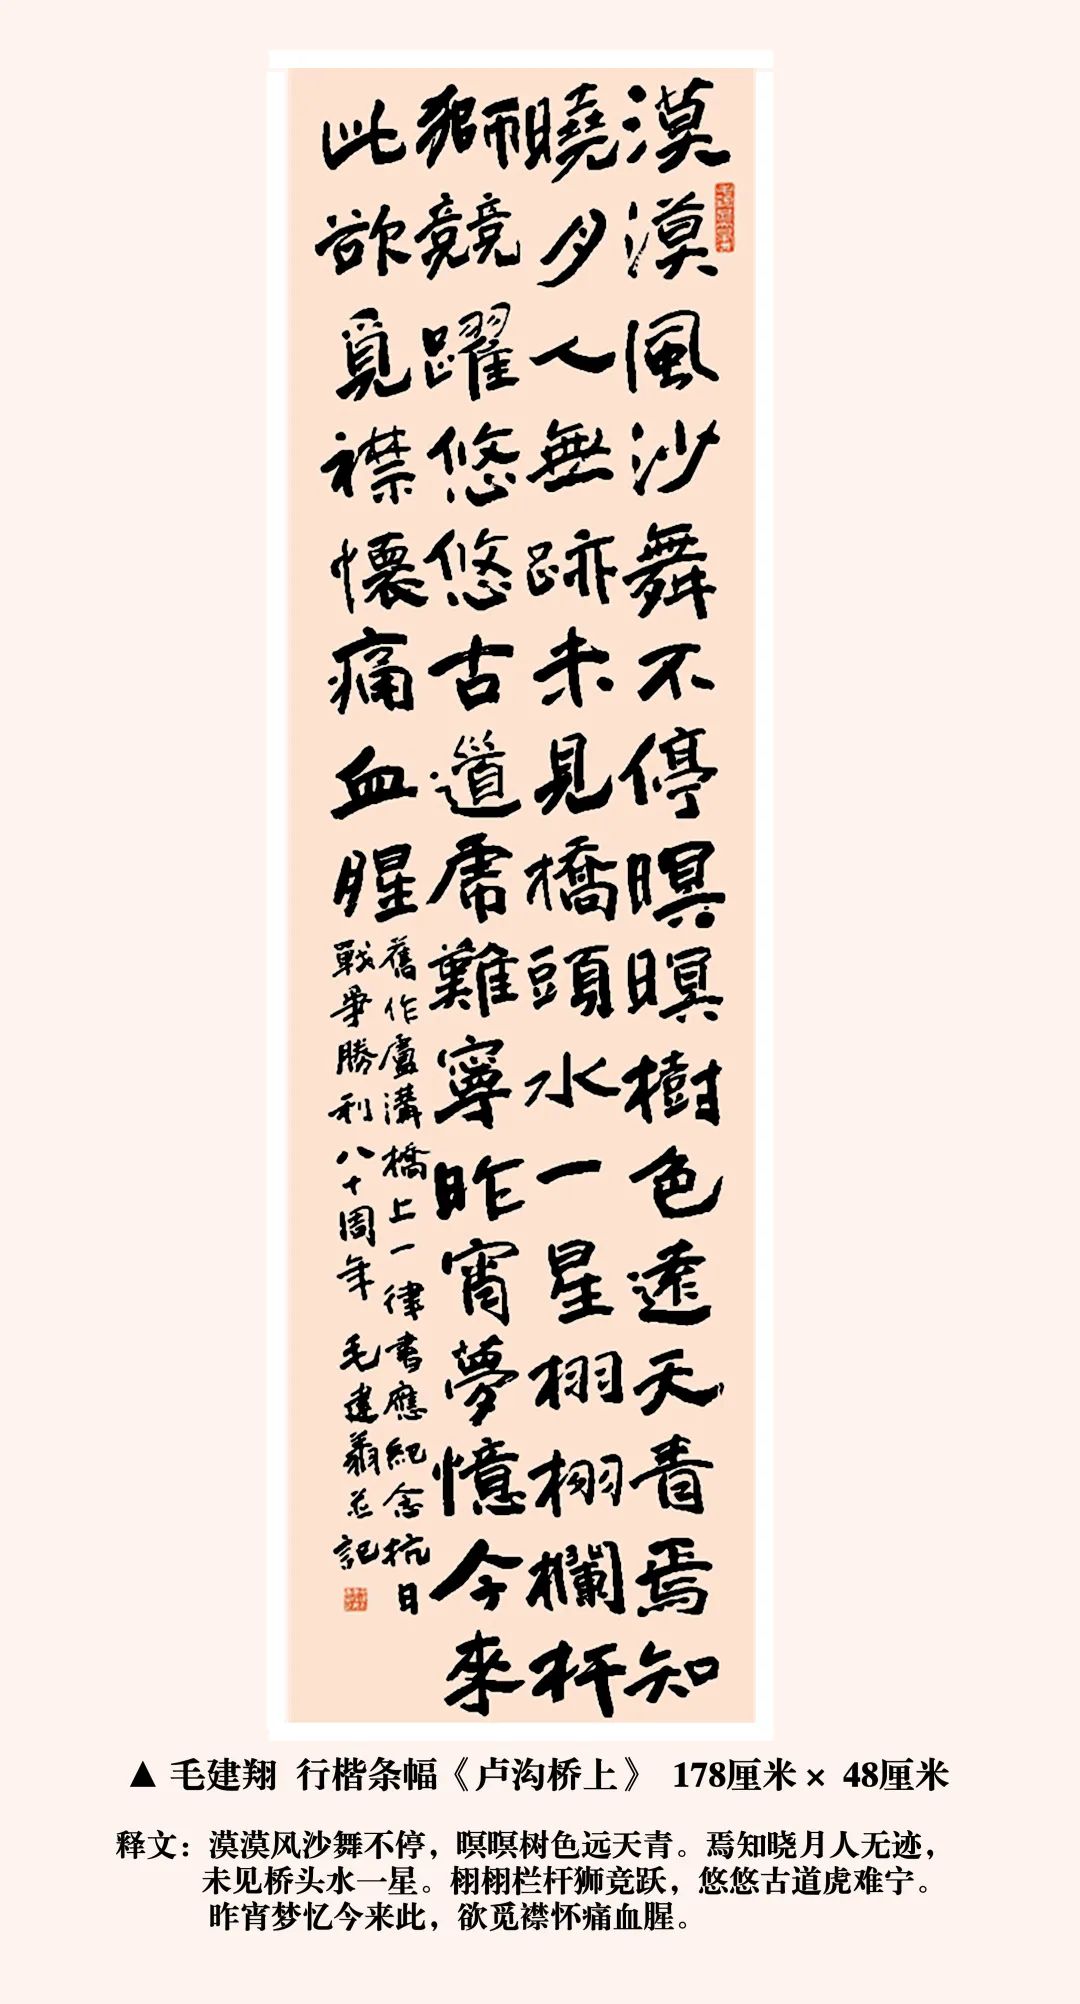 漠漠風沙舞不停暝暝樹色遠天青焉知
曉月人無跡未見橋頭水一星栩栩欄杆
獅競躍悠悠古道虎難寧昨宵夢憶今來
此欲覓襟懷痛血腥
舊作盧溝橋上一律書應紀念抗日
戰爭勝利八十周年 毛建翔並記
▲ 毛建翔 行楷条幅《卢沟桥上》 178厘米 × 48厘米
释文：漠漠风沙舞不停，暝暝树色远天青。焉知晓月人无迹，
未见桥头水一星。栩栩栏杆狮竞跃，悠悠古道虎难宁。
昨宵梦忆今来此，欲觅襟怀痛血腥。